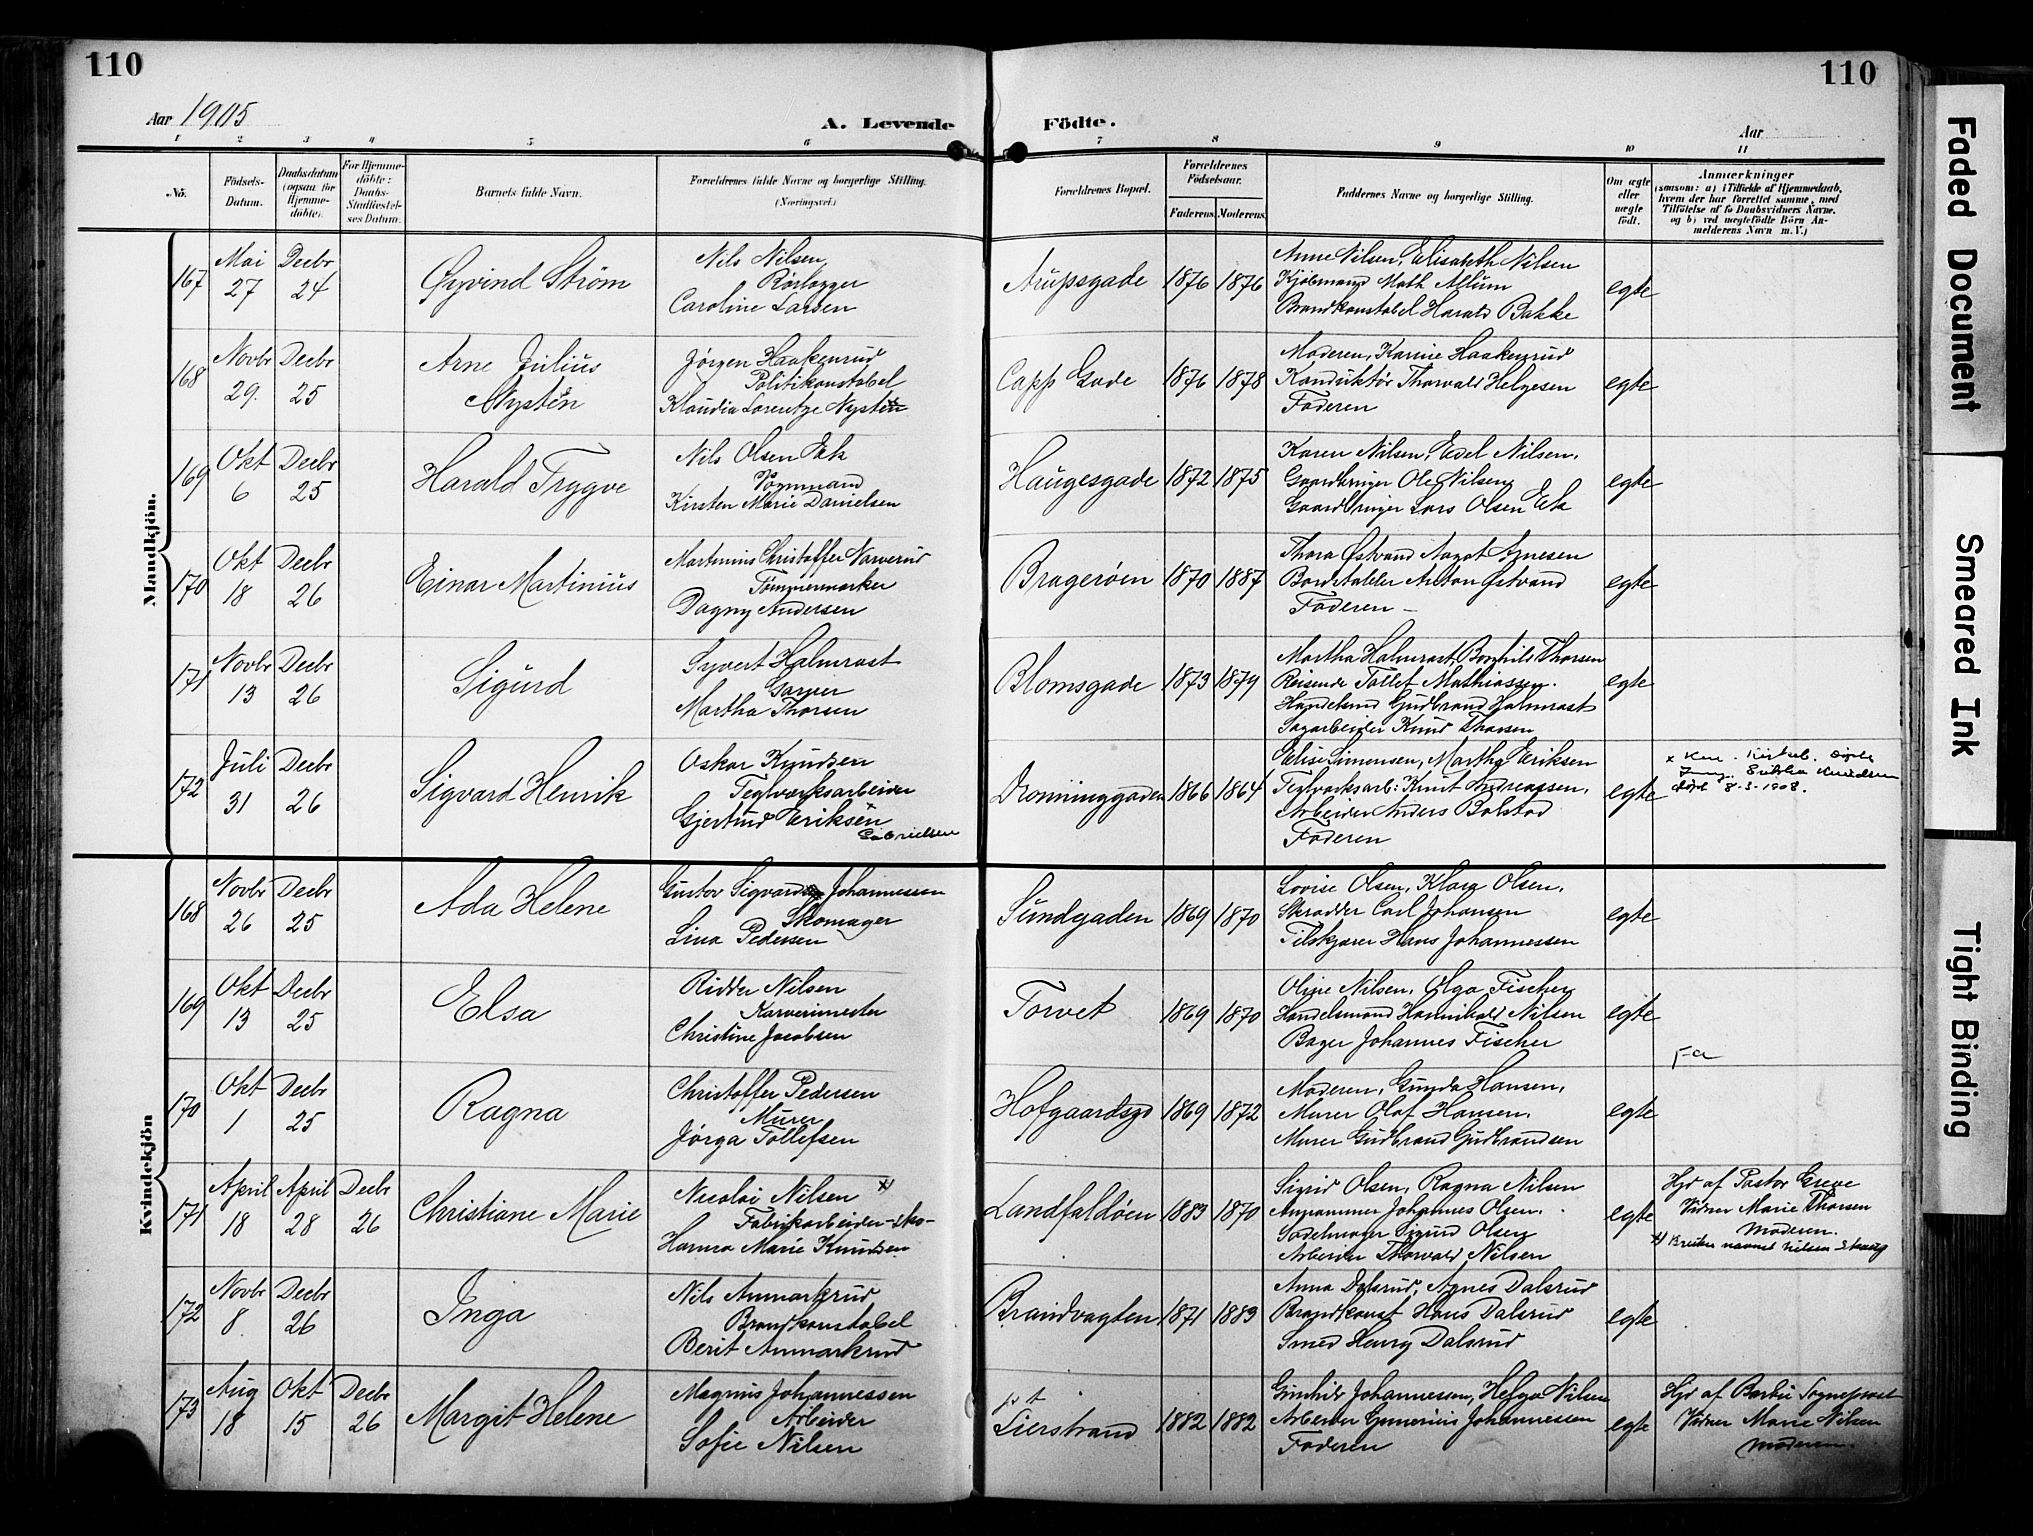 110
110
Aar 1905
A. Levende Födte.
Aar
1 2 3 4 5 6 7 8 9 10 11
No. Födsels-Datum. Daabsdatum (ogsaa for Hjemmedöbte). For Hjemmedöbte: Daabs-Stadfæstelses Datum. Barnets fulde Navn. Forældrenes fulde Navne og borgerlige Stilling. (Næringsvei.) Forældrenes Bopæl. Forældrenes Födselsaar. Faderens Moderens Faddernes Navne og borgerlige Stilling. Om ægte eller uægte födt. Anmærkninger
(saasom: a) i Tilfælde af Hjemmedaab,
hvem der har forrettet samme, med
Tilföielse af to Daabsvidners Navne,
og b) ved uægtefödte Börn An-
melderens Navn m. V.)
Mandkjön.
167 Mai 27 Decbr 24 Øyvind Ström
Nils Nilsen
Rörlægger
Caroline Larsen
Arupsgade 1876 1876
Anne Nilsen, Elisabeth Nilsen
Kjöbmand Math Allum
Brandkonstabel Harald Bakke
egte
168 Novbr 29. Decbr 25 Arne Julius
Nystén
Jörgen Haakenrud
Politikonstabel
Klaudia Lorentze Nystén
Capp Gade 1876 1878
Moderen, Karine Haakenrud
Konduktör Thorvald Helgesen
Faderen
egte
169 Okt 6 Decbr 25 Harald Tryggve
Nils Olsen Eek
Vognmand
Kirsten Marie Danielsen
Haugesgade 1872 1875
Karen Nilsen, Edel Nilsen,
Gaardbruger Ole Nilsen
Gaardbruger Lars Olsen Eek
egte
170 Okt 18 Decbr 26 Einar Martinius
Martinius Christoffer Narverud
Tömmermerker
Dagny Andersen
Brageröen 1870 1887
Thora Østvand Aagot Agnesen
Bordstabler Anton Østvand
Faderen –
egte
171 Novbr 13 Decbr 26 Sigurd
Syvert Halmrast
Garver
Martha Thorsen
Blomsgade 1873 1879
Martha Halmrast, Borghild Thorsen
Reisende Tollef Mathiassen.
Handelsmd Gudbrand Halmrast
Sagarbeider Knud Thorsen
egte
172 Juli 31 Decbr 26 Sigvard Henrik
Oskar Knudsen
Teglværksarbeider
Gjertrud Eriksen x
Gabrielsen
Dronninggaden 1866 1864
Elise Simonsen, Martha Eriksen
Teglværksarb: Knut Andreassen,
Arbeider Anders Bolstad
Faderen
egte
död 8-3-1908.
Kvindekjön
168 Novbr 26 Decbr 25 Ada Helene
Gustav Sigvard Johannessen
Skomager
Lina Pedersen
Sundgaden 1869 1870
Lovise Olsen, Klara Olsen,
Skrædder Carl Johansen
Tilskjærer Hans Johannessen
egte
169 Okt 13 Decbr 25 Elsa
Ridder Nilsen
Garverimester
Christine Jacobsen
Torvet 1869 1870
Oline Nilsen, Olga Fischer
Handelsmand Hannibald Nilsen
Bager Johannes Fischer
egte
170 Okt 1 Decbr 25 Ragna
Christoffer Pedersen
Murer
Jörga Tollefsen
Hofgaardsgd 1869 1872
Moderen, Gunda Hansen,
Murer Olaf Hansen,
Murer Gudbrand Gudbrandsen
egte
Fa
171 April 18 April 28 Decbr 26 Christiane Marie
Nicolai Nilsen x)
Fabrikarbeider-sko-
Hanna Marie Knudsen
Landfaldöen 1883 1870
Sigrid Olsen, Ragna Nilsen
Johannes Olsen.
Sadelmager Sigurd Olsen
Arbeider Thorvald Nilsen
egte
Hjd af Pastor Greve
Vidner Marie Thorsen
Moderen.
x) Bruker navnet Nilsen-Skaug
172 Novbr 8 Decbr 26 Inga
Nils Anmarkrud
Brandkonstabel
Berit Anmarkrud
Brandvagten 1871 1883
Anna Dalsrud, Agnes Dalsrud
Brandkonst Hans Dalsrud
Smed Henry Dalsrud
egte
173 Aug 18 Okt 15 Decbr 26 Margit Helene
Magnus Johannessen
Arbeider
Sofie Nilsen
p t
Lierstrand 1882 1882
Gunhild Johannessen, Helga Nilsen
Arbeider Gunerius Johannessen
Faderen
egte
Hjd af Barbu Sogneprest
Vidner Marie Nilsen
Moderen.
Faded Document
Smeared Ink
Tight Binding